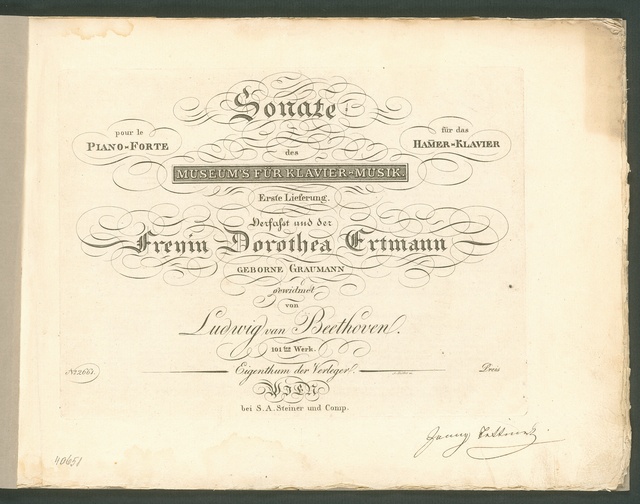 Sonate
pour le
PIANO-FORTE
für das
HAM̄ER-KLAVIER
des
MUSEUM'S FÜR KLAVIER-MUSIK.
Erste Lieferung.
Verfasst und der
Freyin Dorothea Ertmann
GEBORNE GRAUMANN
gewidmet
von
Ludwig van Beethoven.
101tes Werk.
Nr. 2661.
Eigenthum der Verleger.
Preis
WIEN
bei S. A. Steiner und Comp.
40651